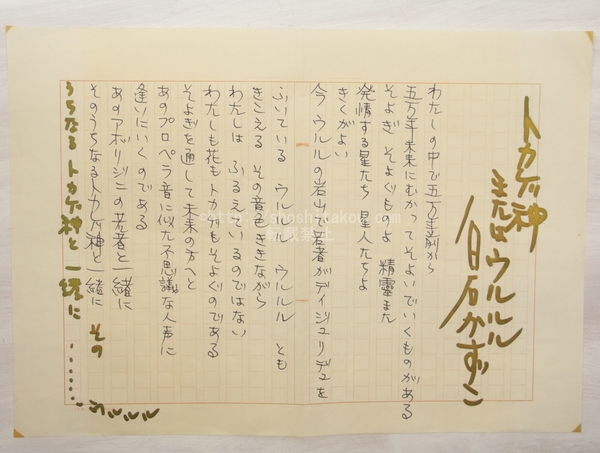 トカゲ神
またはウルルル
白石かずこ
わたしの中で五万年前から
五万年未来にむかってそよいでいくものがある
そよぎ そよぐものよ 精霊また
発情する星たち 星人たちよ
きくがよい
今 ウルルの岩山で若者がディジュリデュを
ふいている ウルルル ウルルル とも
きこえる その音色ききながら
わたしは ふるえているのではない
わたしも花もトカゲもそよぐのである
そよぎを通して未来の方へと
あのプロペラ音に似た不思議な人声に
逢いにいくのである
あのアボリジニの若者と一緒に
そのうちなるトカゲ神と一緒に その
うちなるトカゲ神と一緒に ........ウルルル
転載禁止